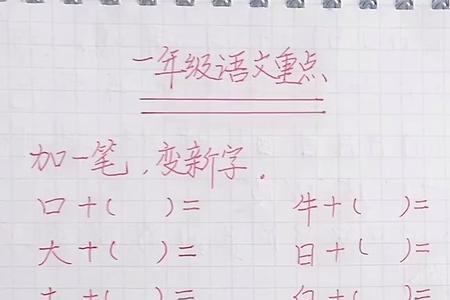 一年级语文重点
加一笔,变新字.
口+(  )=  牛+(  )=
大+(  )=  日+(  )=
+(  )=  白+(  )=